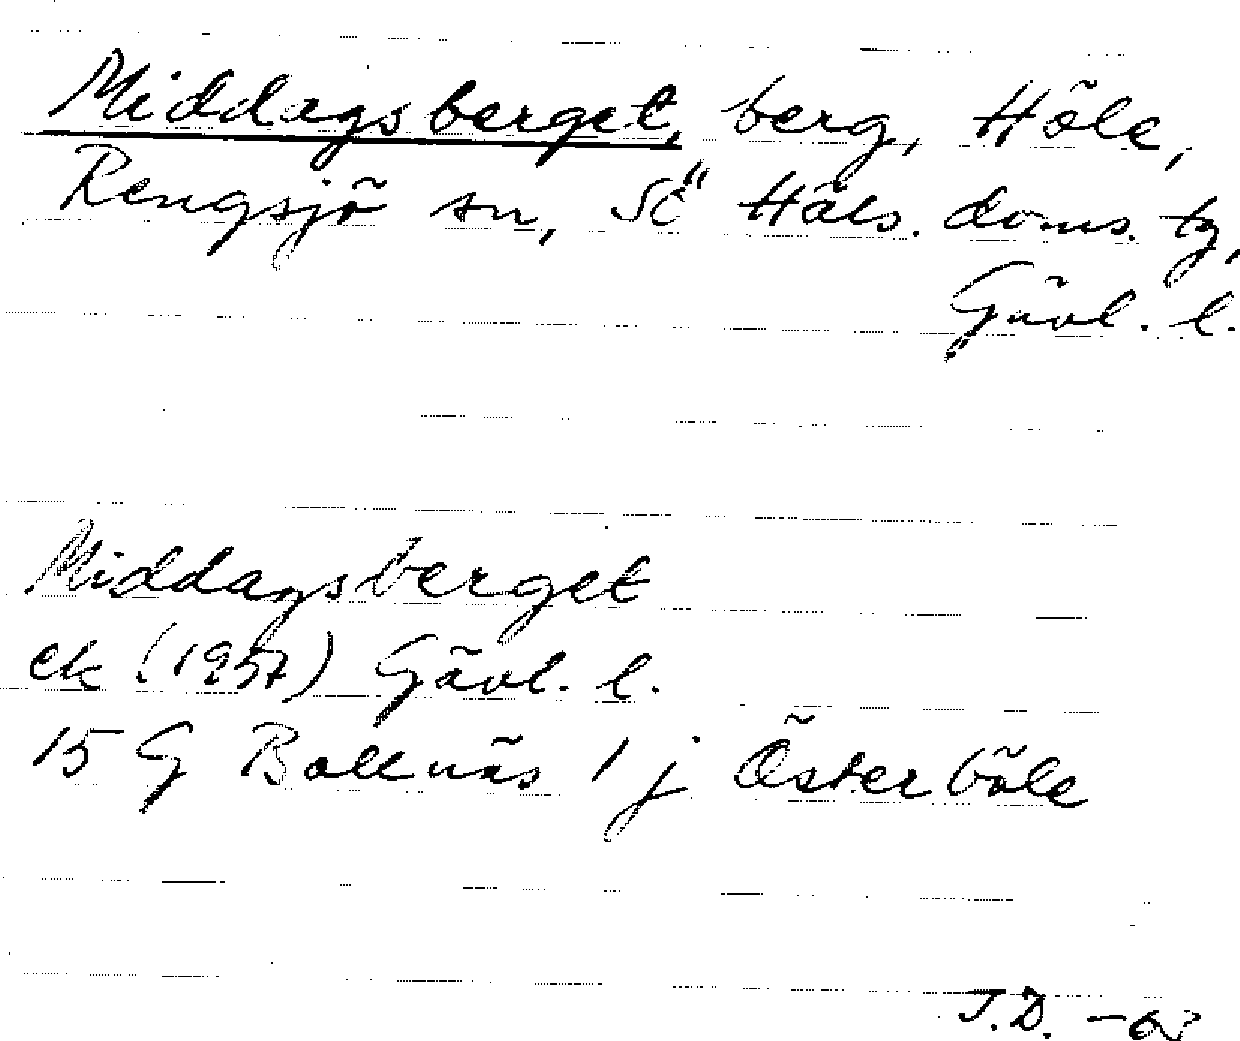 Middagsberget, berg, Höle,
Rengsjö sn, Sö Häls. doms. tg,
Gävl. l.
Middagsberget
ek (1957) Gävl. l.
15 G Bollnäs 1 j Österböle
J.D. -63